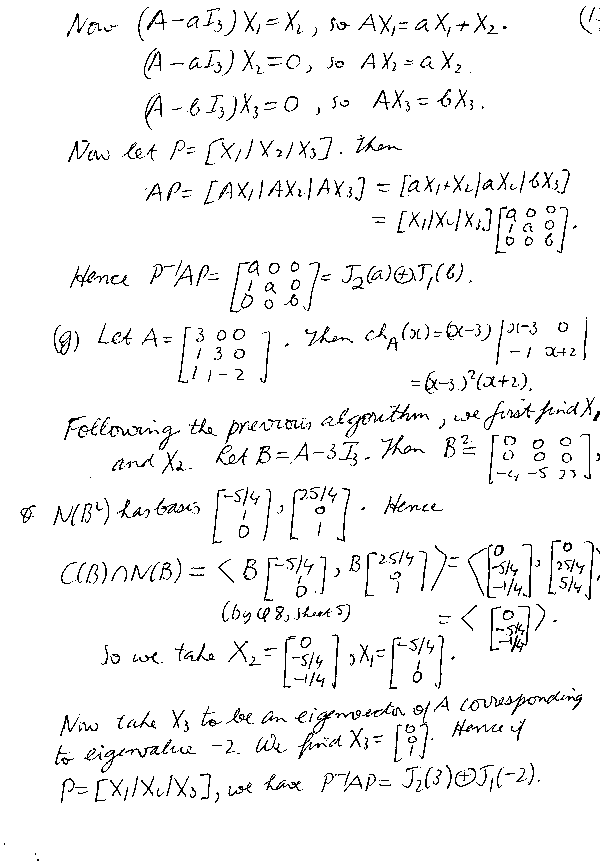 Now (A-aI₃)X₁=X₂, so AX₁=aX₁+X₂. (1
(A-aI₃)X₂=0, so AX₂=aX₂
(A-bI₃)X₃=0, so AX₃=bX₃.
Now let P=[X₁|X₂|X₃]. Then
AP=[AX₁|AX₂|AX₃] = [aX₁+X₂|aX₂|bX₃]
= [X₁|X₂|X₃][a 0 0; 1 a 0; 0 0 b].
Hence P⁻¹AP= [a 0 0; 1 a 0; 0 0 b] = J₂(a)⊕J₁(b).
(g) Let A=[3 0 0; 1 3 0; 1 1 -2]. Then ch_A(x)=(x-3)|x-3 0; -1 x+2|
=(x-3)²(x+2).
Following the previous algorithm, we first find X₁
and X₂. Let B=A-3I₃. Then B²=[0 0 0; 0 0 0; -4 -5 25],
& N(B²) has basis [-5/4; 1; 0], [25/4; 0; 1]. Hence
C(B)∩N(B) = <B[-5/4; 1; 0], B[25/4; 0; 1]> = <[0; -5/4; -1/4], [0; 25/4; 5/4]>
(by Q8, sheet 5) = <[0; -5/4; -1/4]>.
So we take X₂=[0; -5/4; -1/4], X₁=[-5/4; 1; 0].
Now take X₃ to be an eigenvector of A corresponding
to eigenvalue -2. We find X₃=[0; 0; 1]. Hence if
P=[X₁|X₂|X₃], we have P⁻¹AP= J₂(3)⊕J₁(-2).